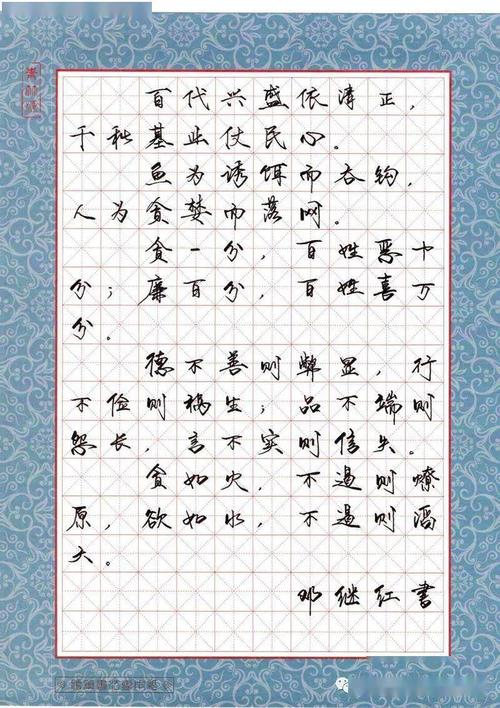 百代兴盛依清正，
千秋基业仗民心。
鱼为诱饵而吞钩，
人为贪婪而落网。
贪一分，百姓恶十
分；廉百分，百姓喜万
分。
德不善则弊显，行
不俭则祸生；品不端则
怨长，言不实则信失。
贪如火，不遏则燎
原，欲如水，不遏则滔
天。
邓继红书